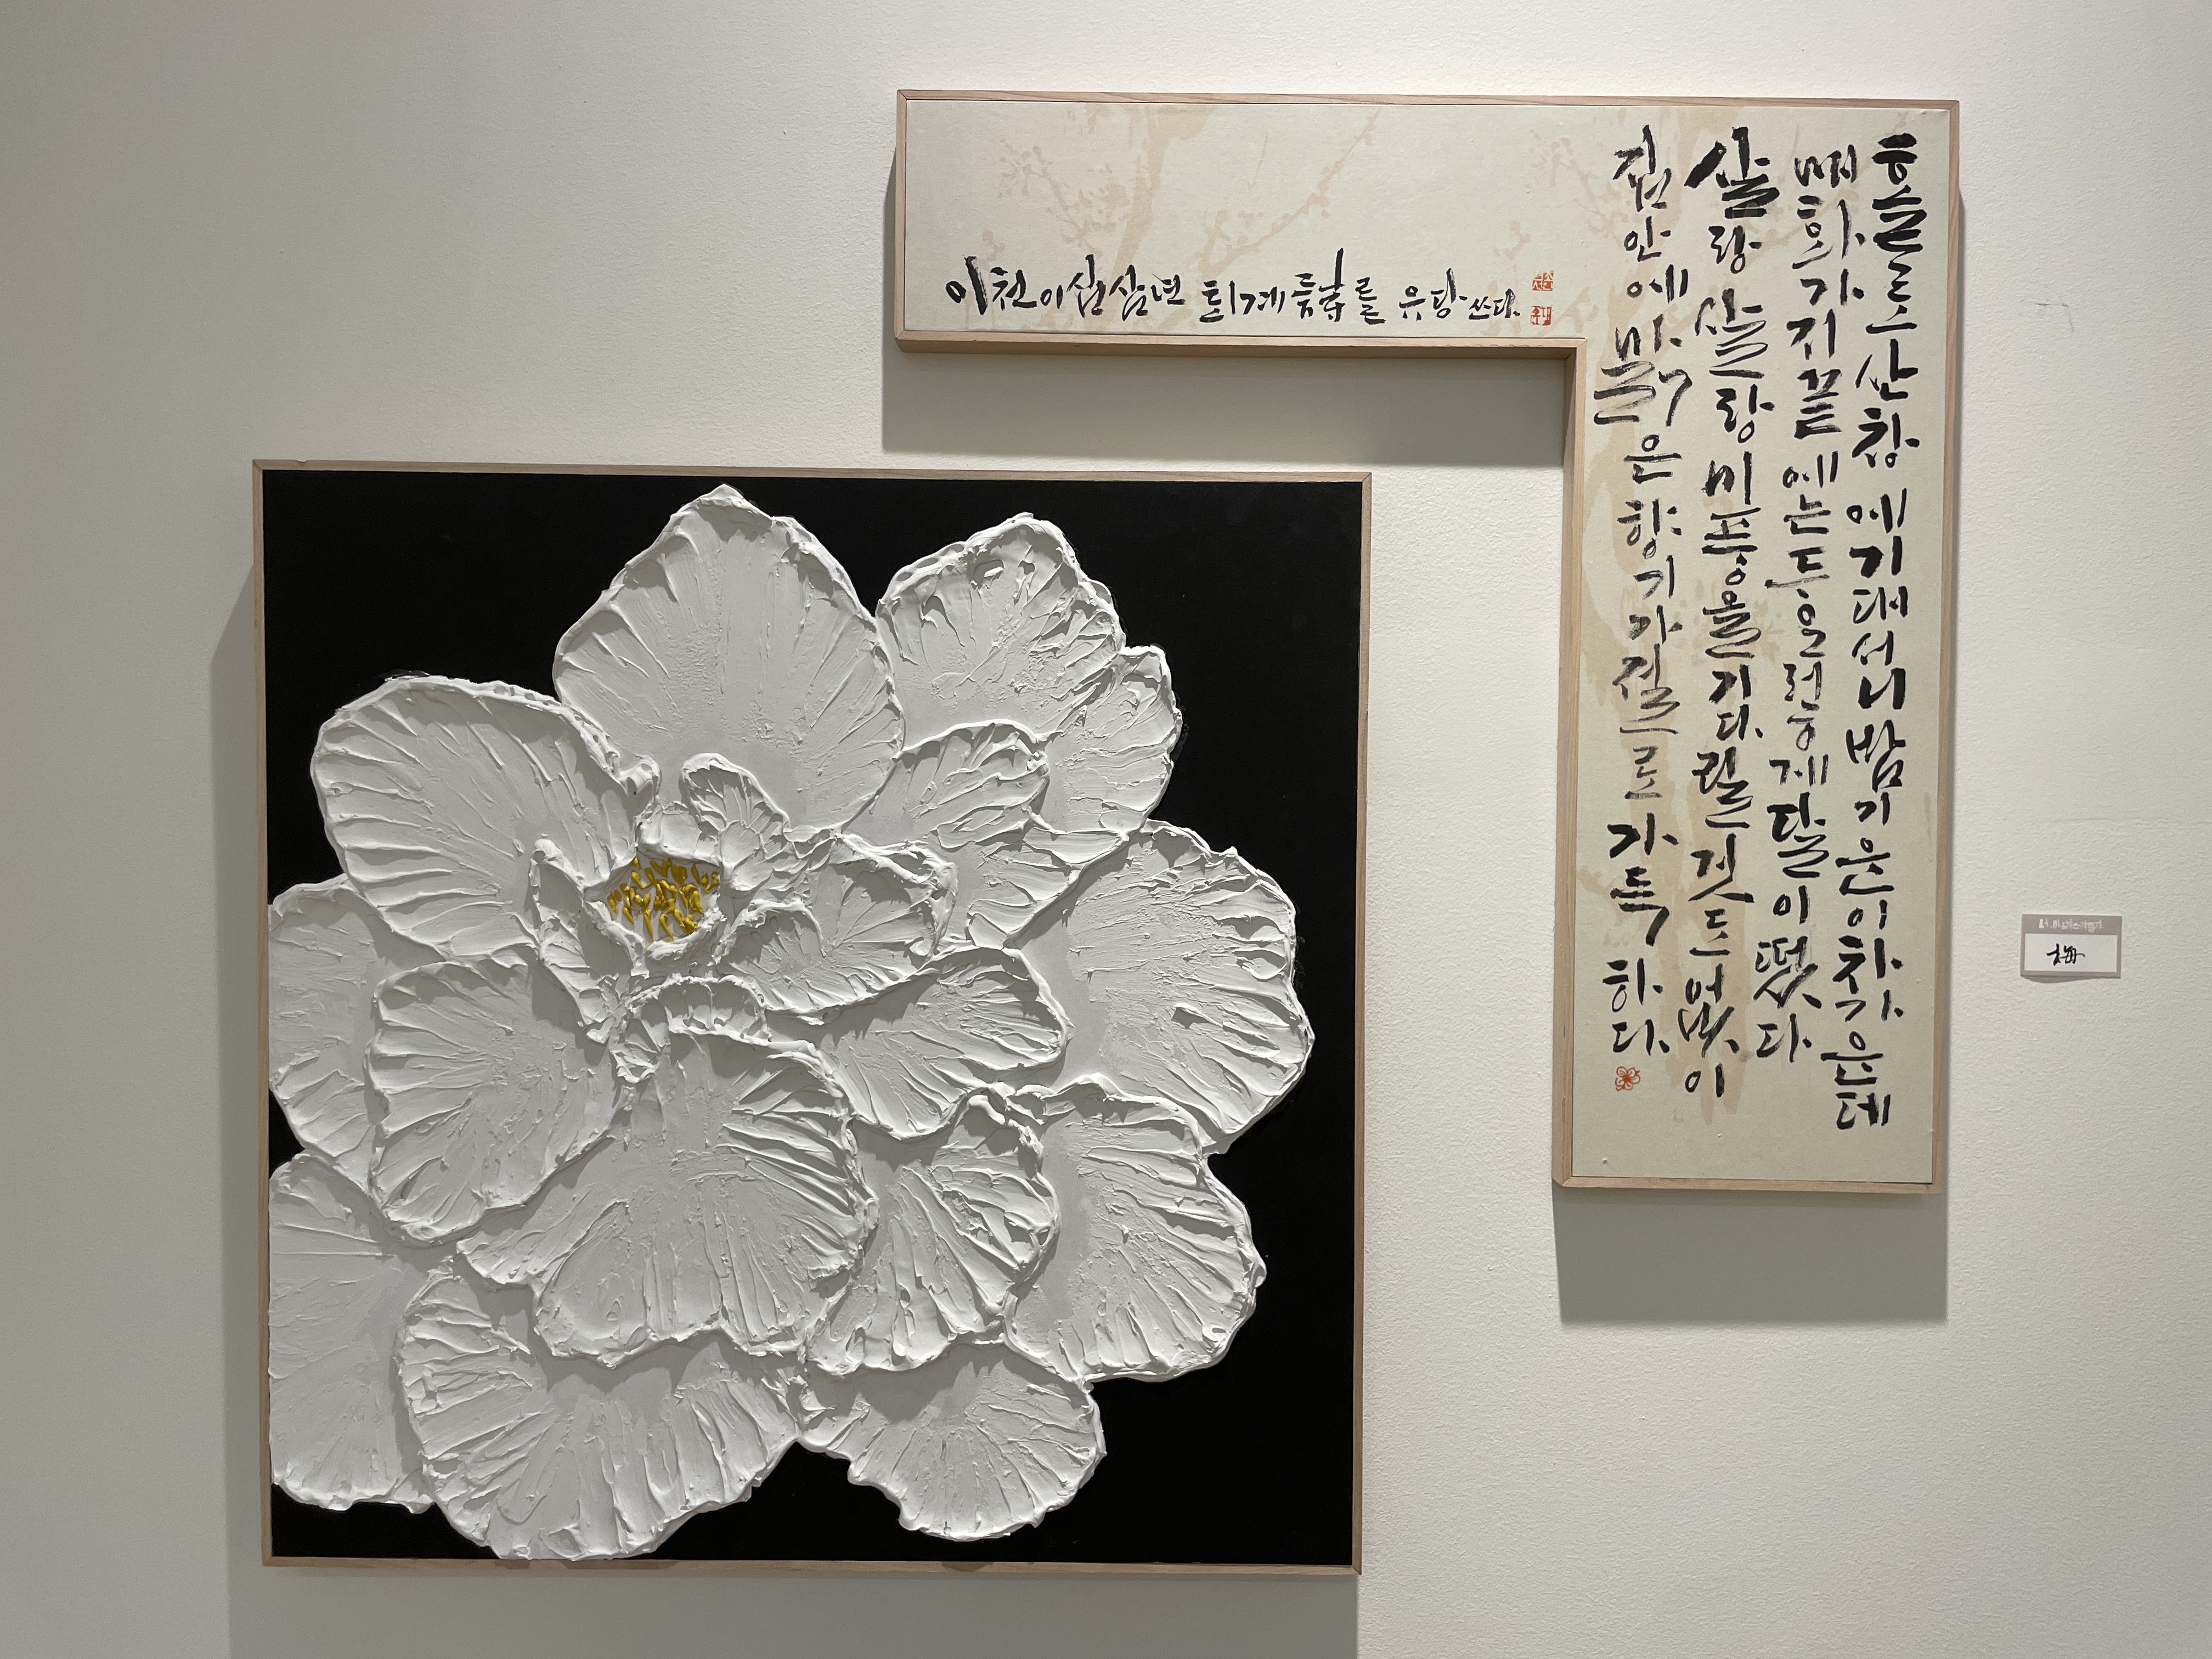 홀로 산창에 기대서니 밤기운이 차가운데
매화가지 끝에는 달이 떴다
살랑살랑 미풍을 기다릴 것도 없이
집안에 맑은 향기가 절로 가득하다.
이천이십삼년 퇴계 를 유당 쓰다.
梅